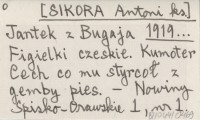 [SIKORA Antoni ks]
Jantek z Bugaja 1919...
Figielki czeskie. Kumoter
Cech co mu styrcoł z
gemby pies. – Nowiny
Spisko-Orawskie 1, nr 1